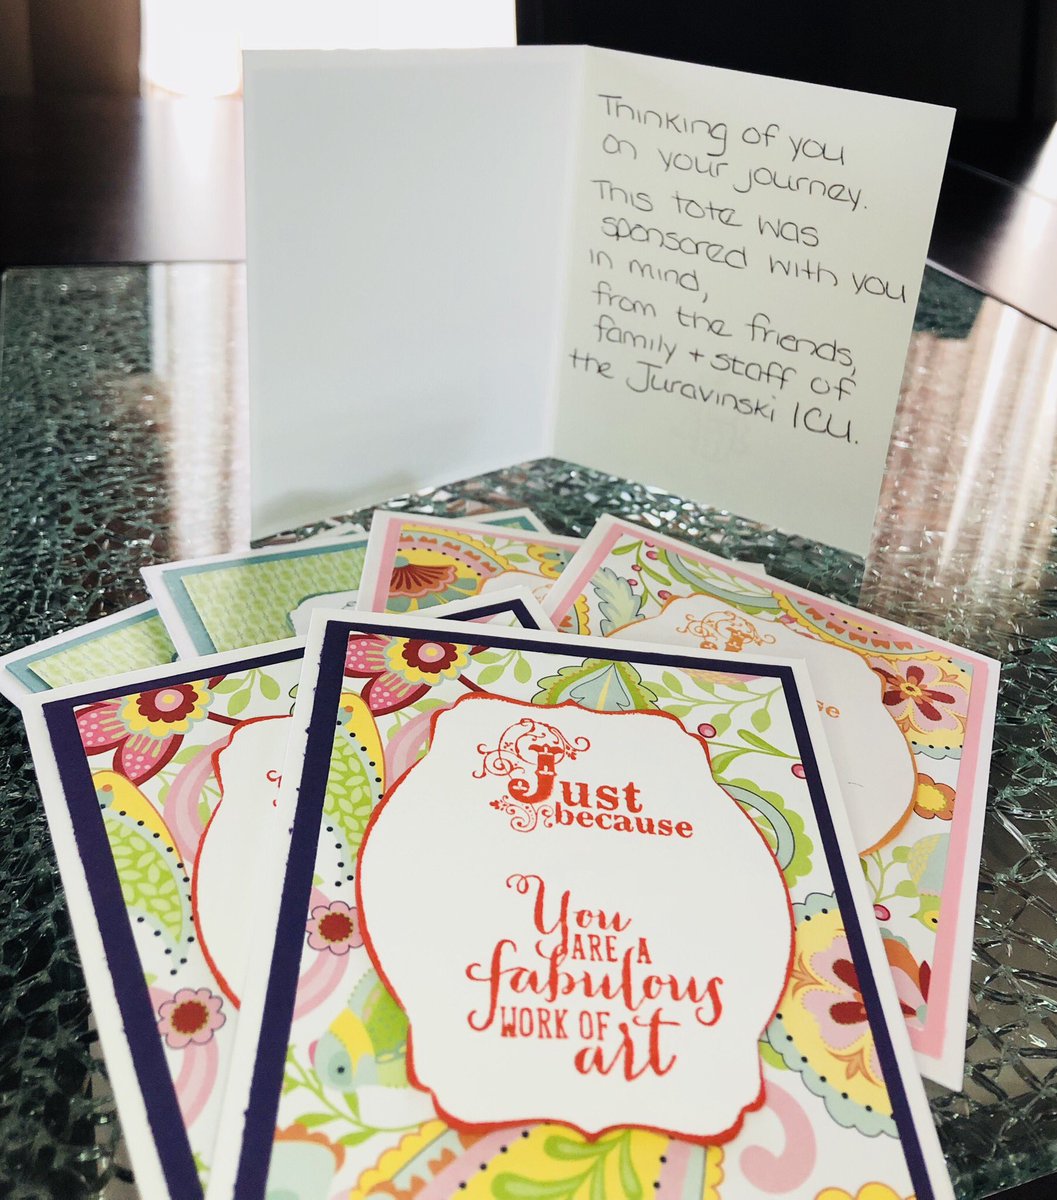 Thinking of you
on your journey.
This tote was
sponsored with you
in mind,
from the friends,
family + staff of
the Juravinski ICU.
Just
because
You
ARE A
fabulous
WORK OF
art